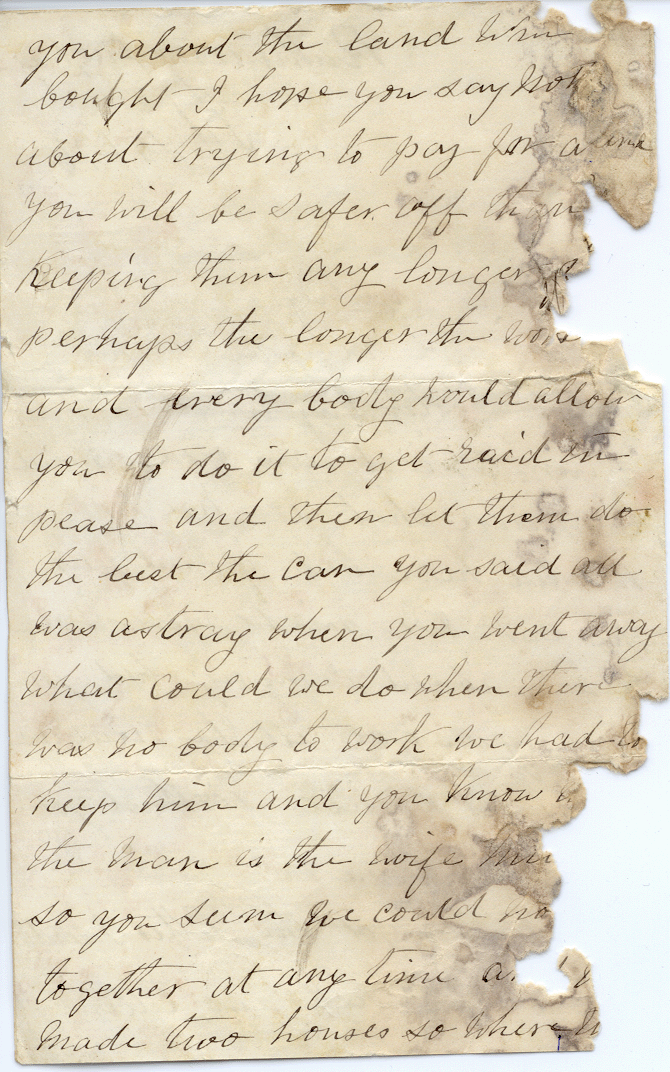 you about the land
bought I hope you say not
about trying to pay for a
you will be safer off than
keeping them any longer
perhaps the longer the
and every body would allow
you to do it to get raid in
pease and then let them do
the best the can you said all
was astray when you went away
what could we do when there
was no body to work we had to
keep him and you know
the man is the wife
so you seem we could
together at any time
made two houses so where